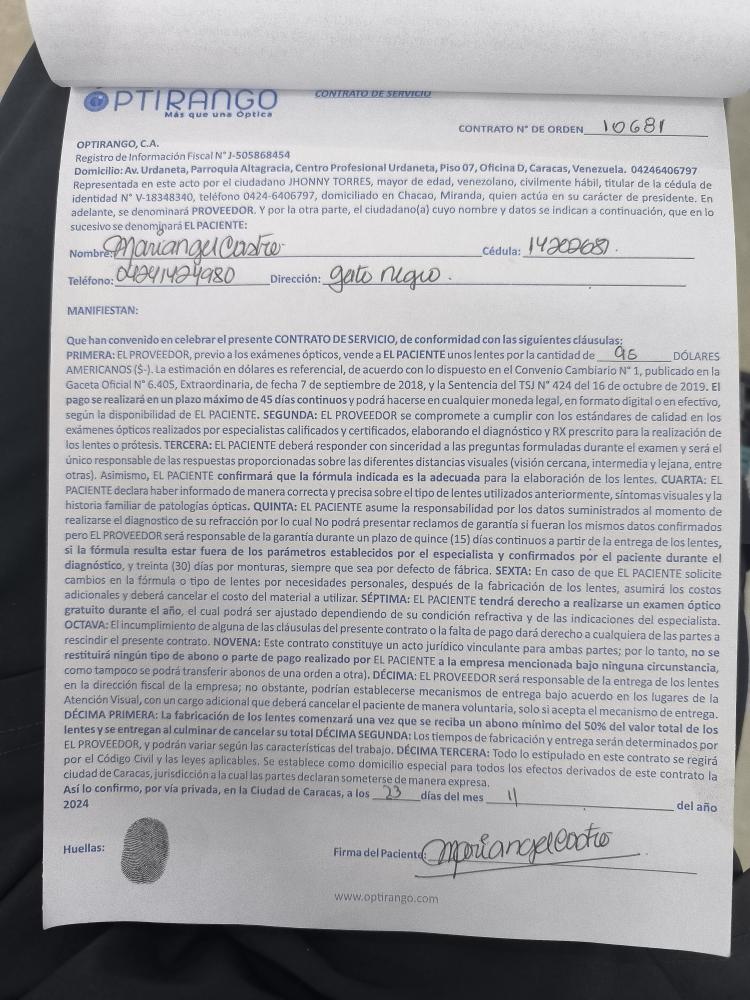 OPTIRANGO
Más que una Óptica
CONTRATO DE SERVICIO
CONTRATO N° DE ORDEN 10681
OPTIRANGO, C.A.
Registro de Información Fiscal N° J-505868454
Domicilio: Av. Urdaneta, Parroquia Altagracia, Centro Profesional Urdaneta, Piso 07, Oficina D, Caracas, Venezuela. 04246406797
Representada en este acto por el ciudadano JHONNY TORRES, mayor de edad, venezolano, civilmente hábil, titular de la cédula de
identidad N° V-18348340, teléfono 0424-6406797, domiciliado en Chacao, Miranda, quien actúa en su carácter de presidente. En
adelante, se denominará PROVEEDOR. Y por la otra parte, el ciudadano(a) cuyo nombre y datos se indican a continuación, que en lo
sucesivo se denominará EL PACIENTE:
Nombre: Mariangel Castro Cédula: 14202687.
Teléfono: 04241424980 Dirección: gato negro.
MANIFIESTAN:
Que han convenido en celebrar el presente CONTRATO DE SERVICIO, de conformidad con las siguientes cláusulas:
PRIMERA: EL PROVEEDOR, previo a los exámenes ópticos, vende a EL PACIENTE unos lentes por la cantidad de 95 DÓLARES
AMERICANOS ($-). La estimación en dólares es referencial, de acuerdo con lo dispuesto en el Convenio Cambiario N° 1, publicado en la
Gaceta Oficial N° 6.405, Extraordinaria, de fecha 7 de septiembre de 2018, y la Sentencia del TSJ N° 424 del 16 de octubre de 2019. El
pago se realizará en un plazo máximo de 45 días continuos y podrá hacerse en cualquier moneda legal, en formato digital o en efectivo,
según la disponibilidad de EL PACIENTE. SEGUNDA: EL PROVEEDOR se compromete a cumplir con los estándares de calidad en los
exámenes ópticos realizados por especialistas calificados y certificados, elaborando el diagnóstico y RX prescrito para la realización de
los lentes o prótesis. TERCERA: EL PACIENTE deberá responder con sinceridad a las preguntas formuladas durante el examen y será el
único responsable de las respuestas proporcionadas sobre las diferentes distancias visuales (visión cercana, intermedia y lejana, entre
otras). Asimismo, EL PACIENTE confirmará que la fórmula indicada es la adecuada para la elaboración de los lentes. CUARTA: EL
PACIENTE declara haber informado de manera correcta y precisa sobre el tipo de lentes utilizados anteriormente, síntomas visuales y la
historia familiar de patologías ópticas. QUINTA: EL PACIENTE asume la responsabilidad por los datos suministrados al momento de
realizarse el diagnostico de su refracción por lo cual No podrá presentar reclamos de garantía si fueran los mismos datos confirmados
pero EL PROVEEDOR será responsable de la garantía durante un plazo de quince (15) días continuos a partir de la entrega de los lentes,
si la fórmula resulta estar fuera de los parámetros establecidos por el especialista y confirmados por el paciente durante el
diagnóstico, y treinta (30) días por monturas, siempre que sea por defecto de fábrica. SEXTA: En caso de que EL PACIENTE solicite
cambios en la fórmula o tipo de lentes por necesidades personales, después de la fabricación de los lentes, asumirá los costos
adicionales y deberá cancelar el costo del material a utilizar. SÉPTIMA: EL PACIENTE tendrá derecho a realizarse un examen óptico
gratuito durante el año, el cual podrá ser ajustado dependiendo de su condición refractiva y de las indicaciones del especialista.
OCTAVA: El incumplimiento de alguna de las cláusulas del presente contrato o la falta de pago dará derecho a cualquiera de las partes a
rescindir el presente contrato. NOVENA: Este contrato constituye un acto jurídico vinculante para ambas partes; por lo tanto, no se
restituirá ningún tipo de abono o parte de pago realizado por EL PACIENTE a la empresa mencionada bajo ninguna circunstancia,
como tampoco se podrá transferir abonos de una orden a otra). DÉCIMA: EL PROVEEDOR será responsable de la entrega de los lentes
en la dirección fiscal de la empresa; no obstante, podrían establecerse mecanismos de entrega bajo acuerdo en los lugares de la
Atención Visual, con un cargo adicional que deberá cancelar el paciente de manera voluntaria, solo si acepta el mecanismo de entrega.
DÉCIMA PRIMERA: La fabricación de los lentes comenzará una vez que se reciba un abono mínimo del 50% del valor total de los
lentes y se entregan al culminar de cancelar su total DÉCIMA SEGUNDA: Los tiempos de fabricación y entrega serán determinados por
EL PROVEEDOR, y podrán variar según las características del trabajo. DÉCIMA TERCERA: Todo lo estipulado en este contrato se regirá
por el Código Civil y las leyes aplicables. Se establece como domicilio especial para todos los efectos derivados de este contrato la
ciudad de Caracas, jurisdicción a la cual las partes declaran someterse de manera expresa.
Así lo confirmo, por vía privada, en la Ciudad de Caracas, a los 23 días del mes 11 del año
2024
Huellas:
Firma del Paciente: Mariangel Castro
www.optirango.com